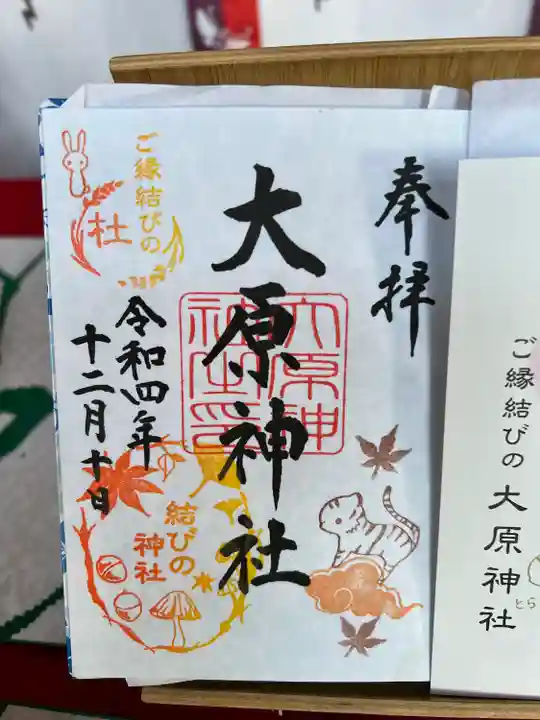 奉拝
大原神社
大原神
社之印
令和四年
十二月十日
ご縁結びの
杜
結びの
神社
ご縁結びの
大原神社
とら